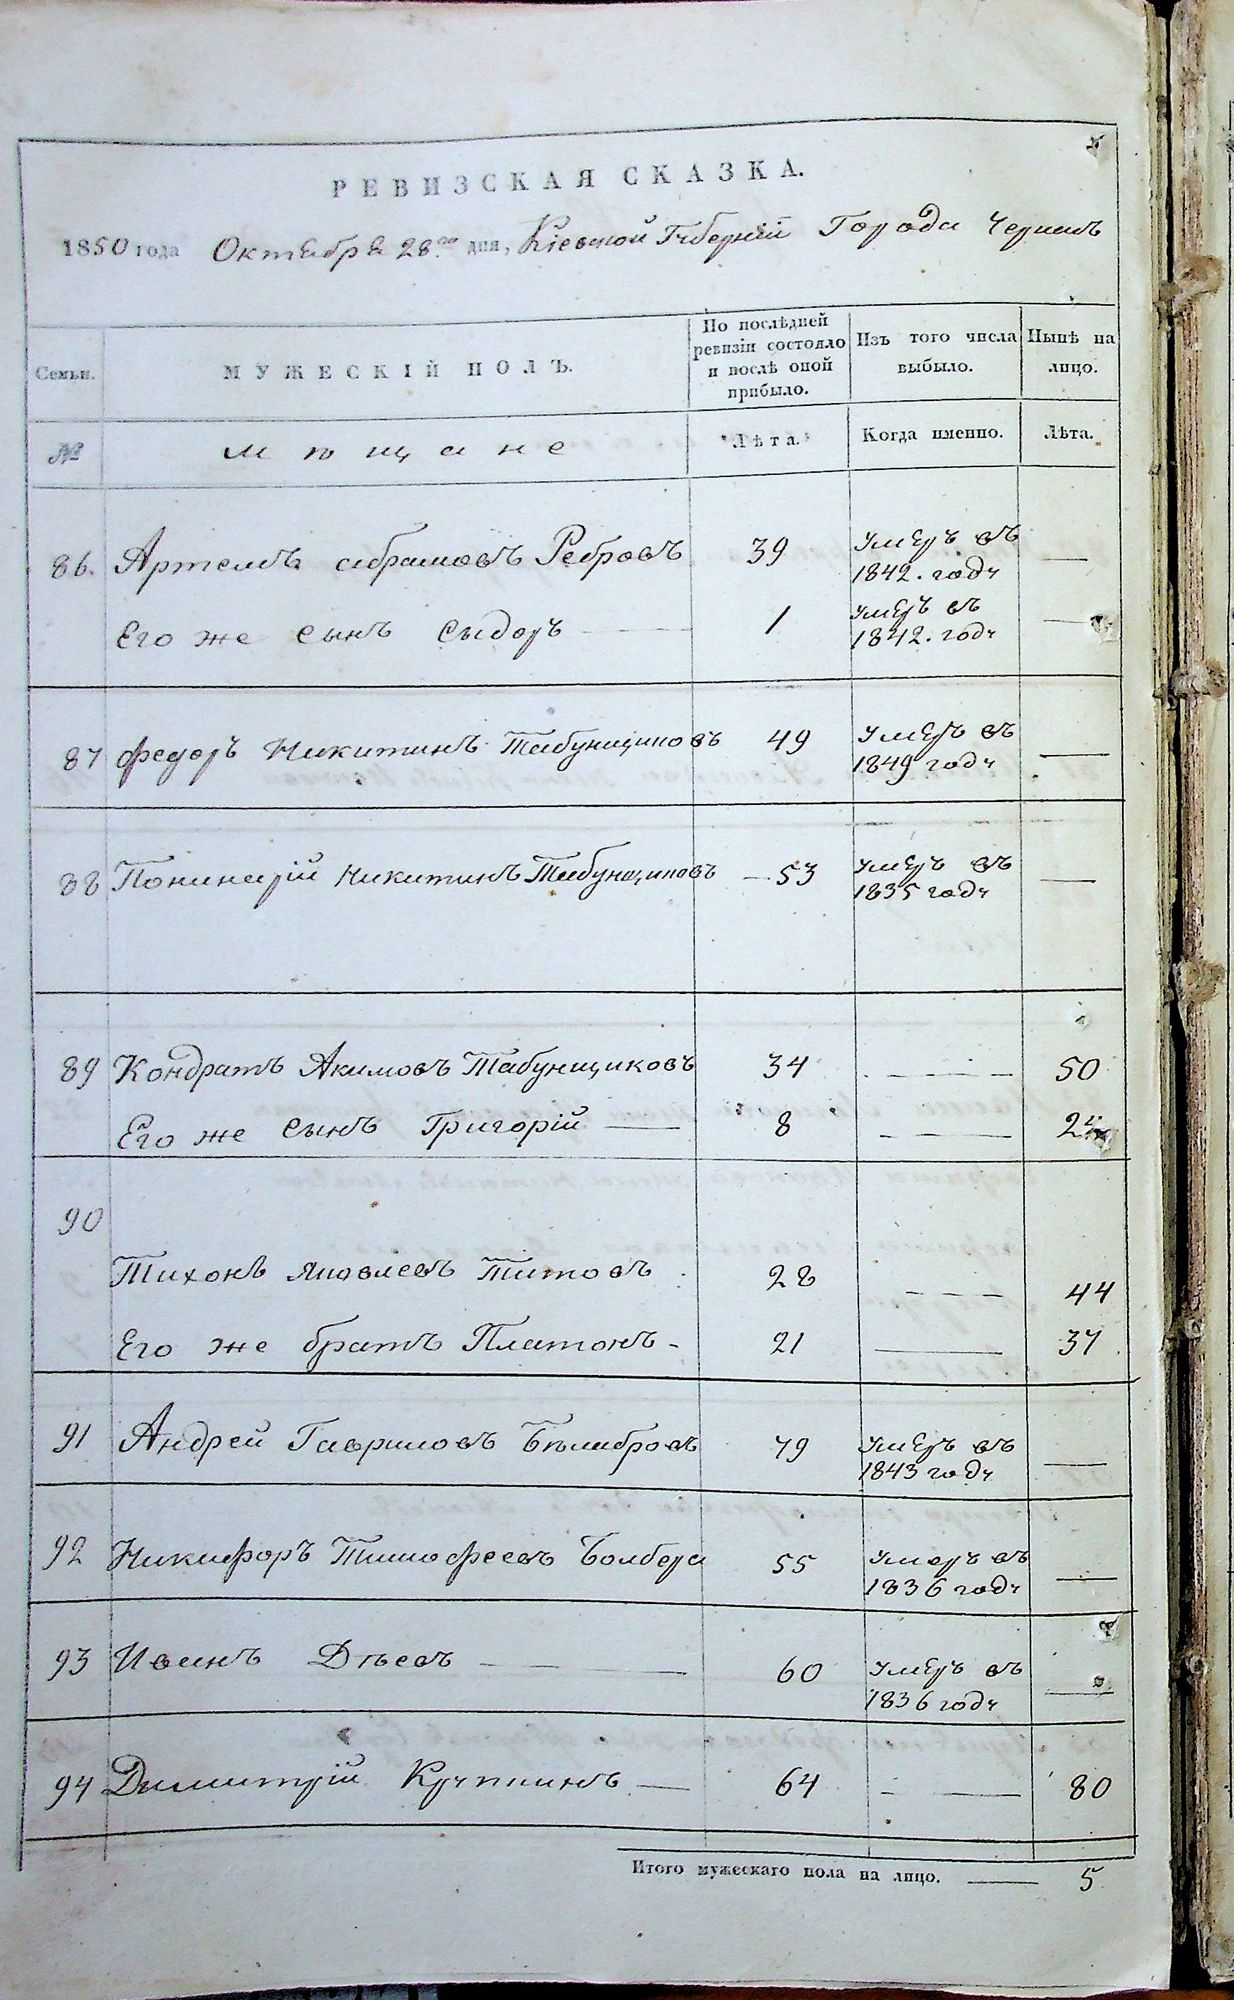 РЕВИЗСКАЯ СКАЗКА.
1850 года Октября 28го дня, Кіевской Губерніи Города
Семьи.
МУЖЕСКІЙ ПОЛЪ.
По послѣдней ревизіи состояло и послѣ оной прибыло.
Изъ того числа выбыло.
Нынѣ на лицо.
№ мѣщане Лѣта. Когда именно. Лѣта.
86. Артемъ Абрамовъ Ребровъ 39 умеръ въ 1842. году —
Его же сынъ Сыдоръ — 1 умеръ въ 1842. году —
87 Федоръ Никитинъ Табунщиковъ 49 умеръ въ 1849 году —
88 Никитинъ Табунщиковъ — 53 умеръ въ 1835 году —
89 Кондратъ Акимовъ Табунщиковъ 34 — 50
Его же сынъ Григорій — 8 — 24
90
Тихонъ Яковлевъ Титовъ 28 — 44
Его же братъ Платонъ - 21 — 37
91 Андрей Гавриловъ 79 умеръ въ 1843 году —
92 Никифоръ Тимофеевъ 55 умеръ въ 1836 году —
93 Иванъ — 60 умеръ въ 1836 году —
94 Димитрій — 64 — 80
Итого мужескаго пола на лицо. — 5